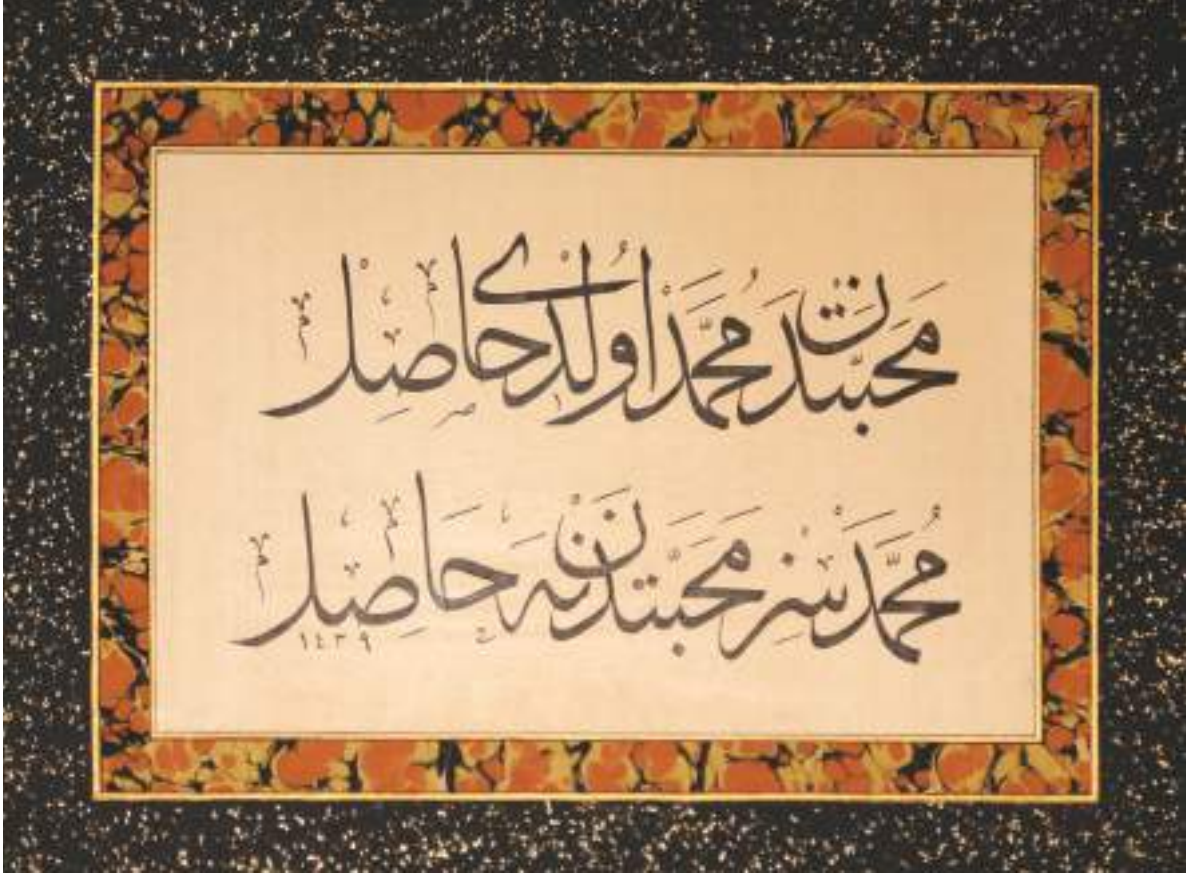 محبتدن محمد اولدی حاصل
محمدسز محبتدن نه حاصل
١٤٣٩